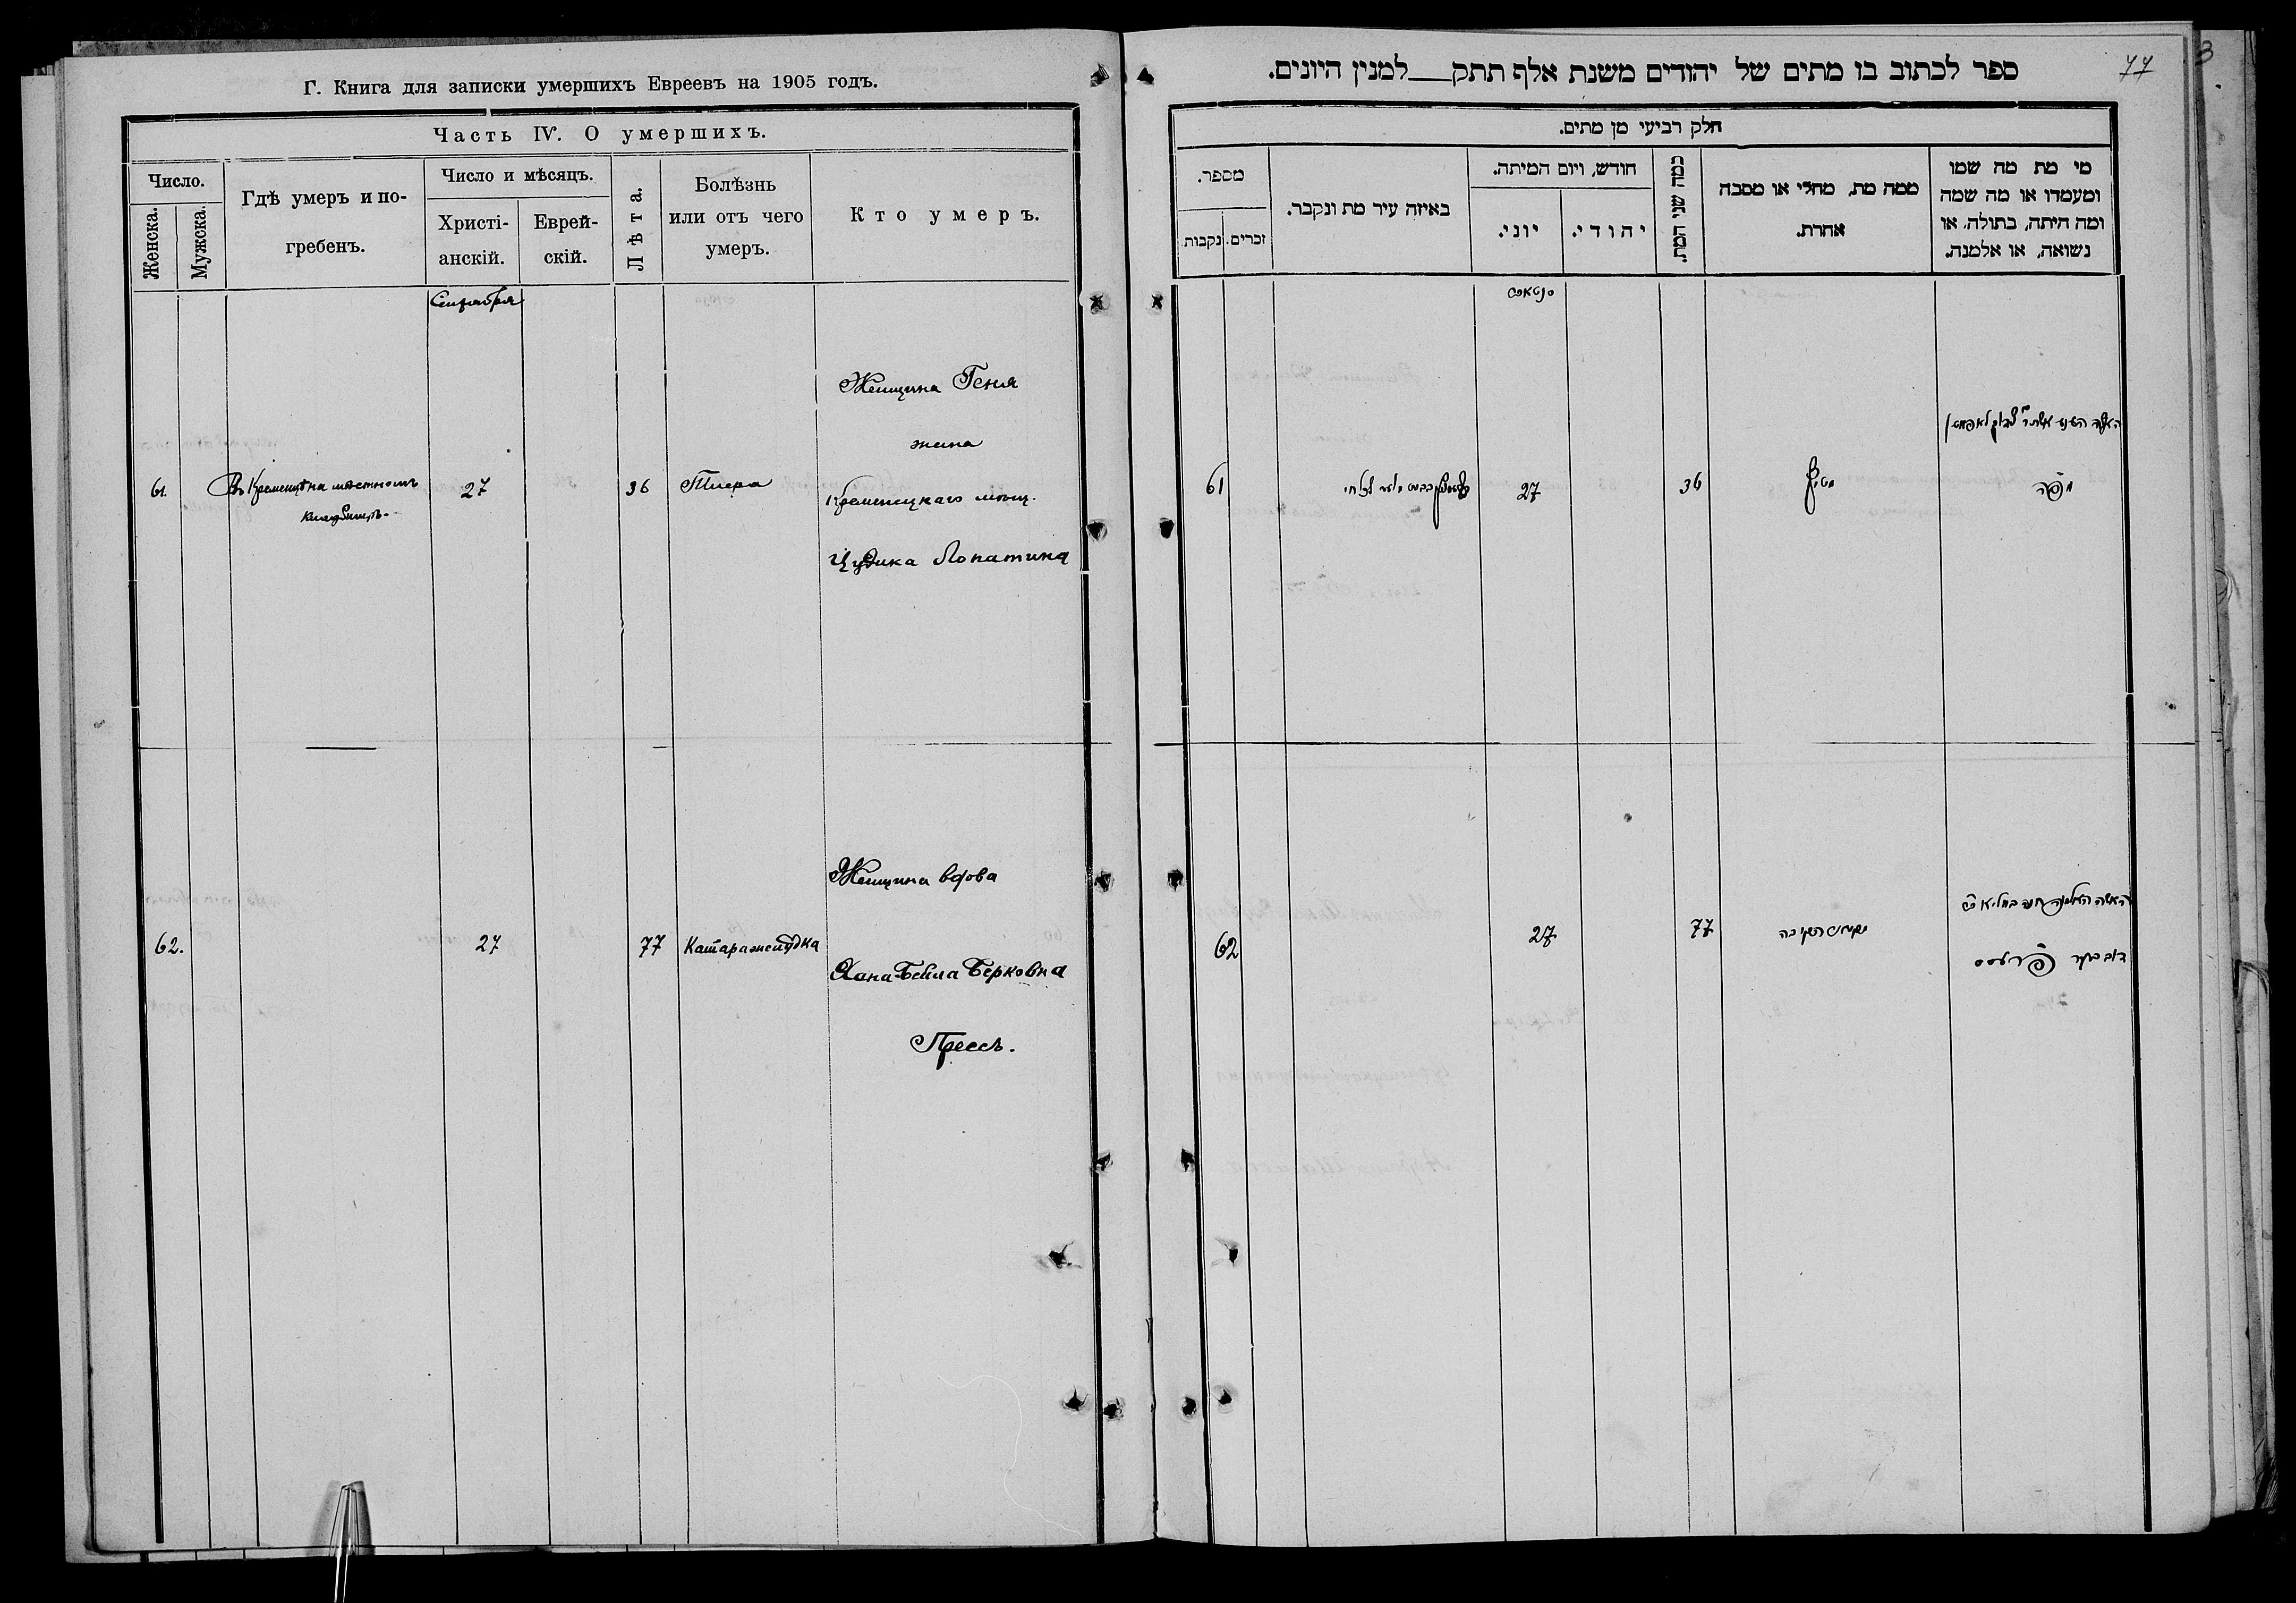 Г. Книга для записки умершихъ Евреевъ на 1905 годъ.
Часть IV. О умершихъ.
Число.
Женска.
Мужска.
Гдѣ умеръ и по-
гребенъ.
Число и мѣсяцъ.
Христі-
анскій.
Еврей-
скій.
Лѣта.
Болѣзнь
или отъ чего
умеръ.
Кто умеръ.
Сентября
61.
Въ Кременцѣ на мѣстномъ
кладбищѣ.
27
36
Женщина Геня
жена
Кременецкаго мѣщ.
Цудика Лопатина
62.
27
77
Катаръ желудка
Женщина вдова
Хана-Бейла Берковна
Прессъ.
77
3
ספר לכתוב בו מתים של יהודים משנת אלף תתק למנין היונים.
חלק רביעי מן מתים.
מספר.
נקבות
זכרים.
באיזה עיר מת ונקבר.
חודש, ויום המיתה.
יוני.
יהודי.
כמה שני המת.
ממה מת, מחלי או מסבה
אחרת.
מי מת מה שמו
ומעמדו או מה שמה
ומה היתה, בתולה, או
נשואה, או אלמנה.
61
27
36
62
27
77
האשה האלמנה חנה ביילא